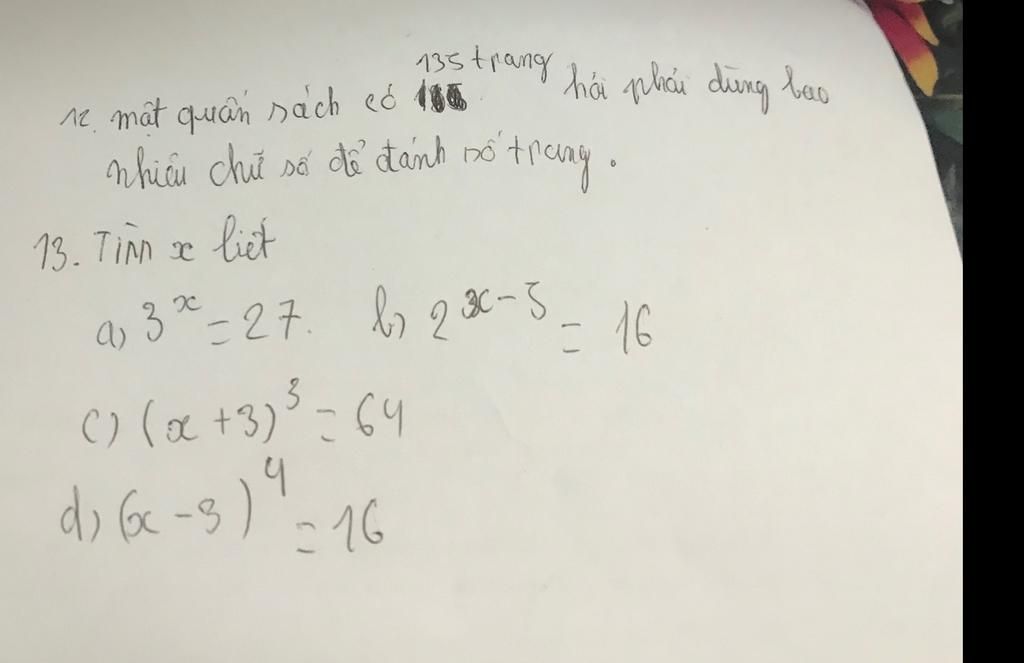 12. một quấn sách có 135 trang hỏi phải dùng bao
nhiêu chữ số để đánh số trang.
13. Tìm x biết
a) 3^x = 27. b) 2^x-5 = 16
c) (x + 3)^3 = 64
d) (x - 3)^4 = 16